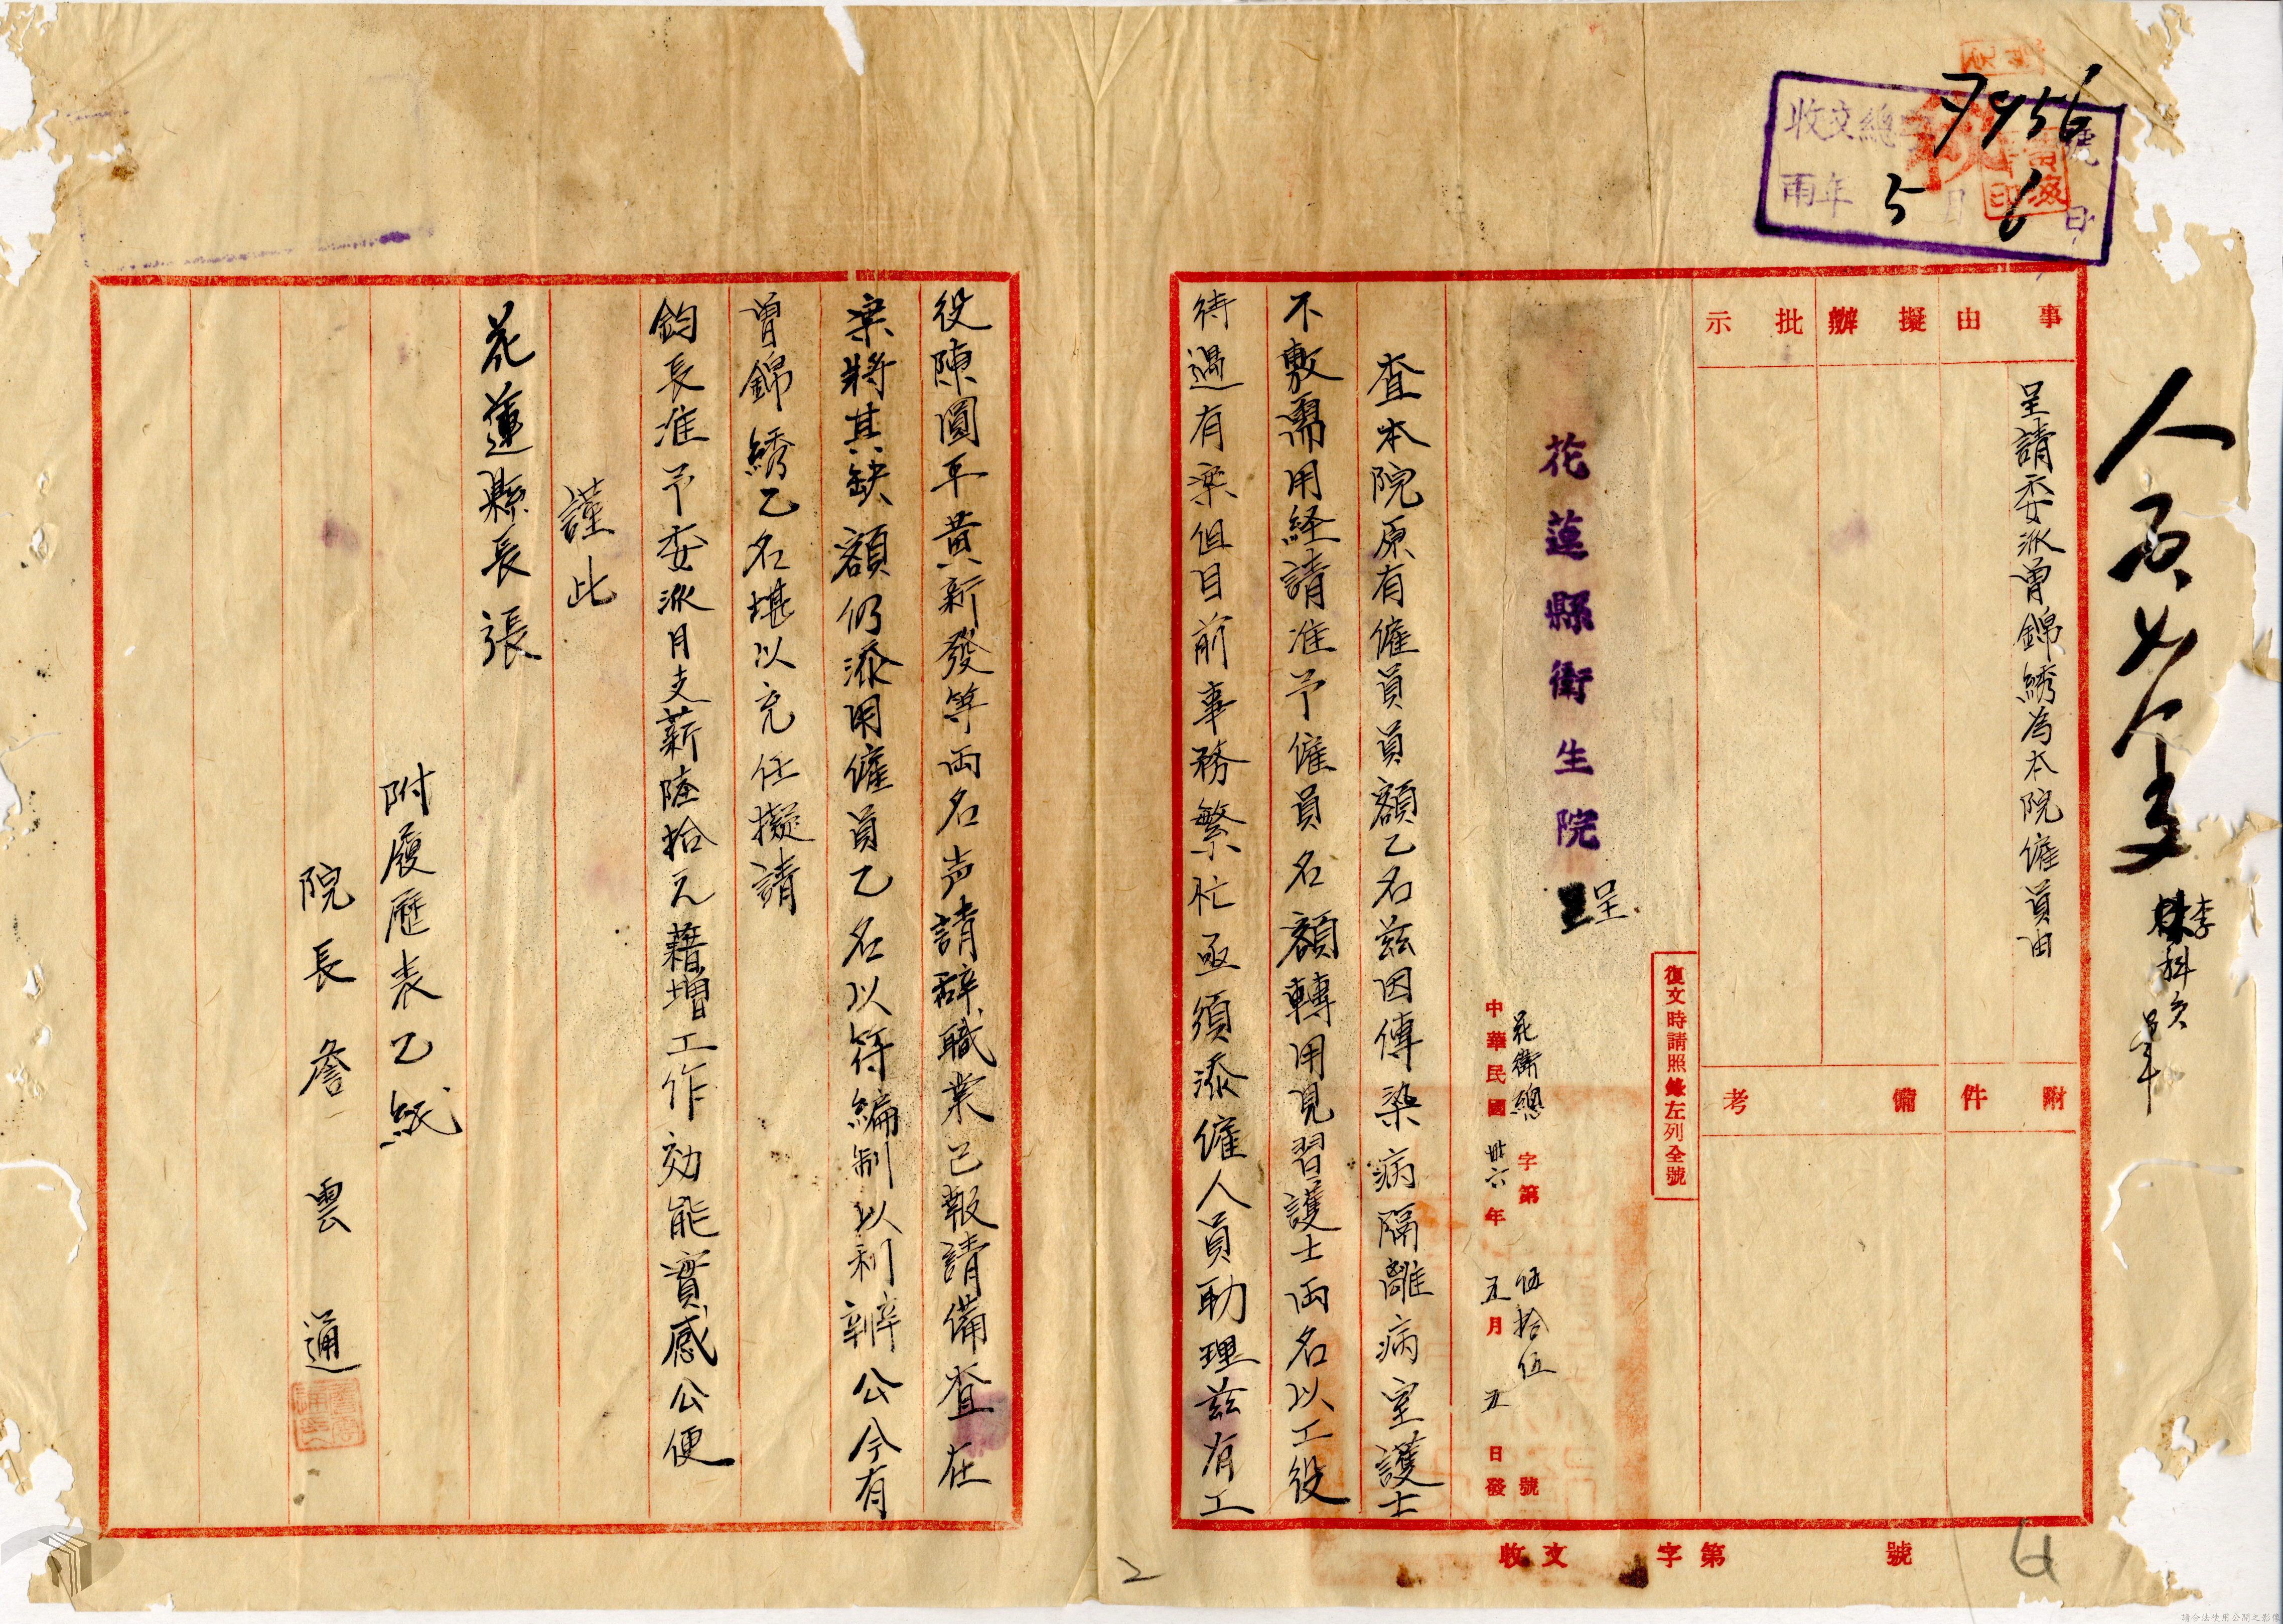 收文總字7956號
丙年5月6日
人府如擬
李科員
事由
擬辦
批示
呈請委派曾錦綉為本院僱員由
附件
備考
復文時請照錄左列全號
花蓮縣衛生院
呈
花衛總字第伍拾伍號
中華民國卅六年五月五日發
查本院原有僱員員額乙名茲因傳染病隔離病室護士
不敷需用経請准予僱員名額轉用見習護士両名以工役
待過有案但目前事務繁忙亟須添僱人員助理茲有工
役陳圓平黃新發等両名声請辞職業已報請備查在
案將其缺額仍添用僱員乙名以符編制以利辦公今有
曾錦綉乙名堪以充任擬請
鈞長准予委派月支薪陸拾元藉增工作効能實感公便
謹此
花蓮縣長張
附履歷表乙紙
院長詹雲通
收文字第號
2
請合法使用公開之影像